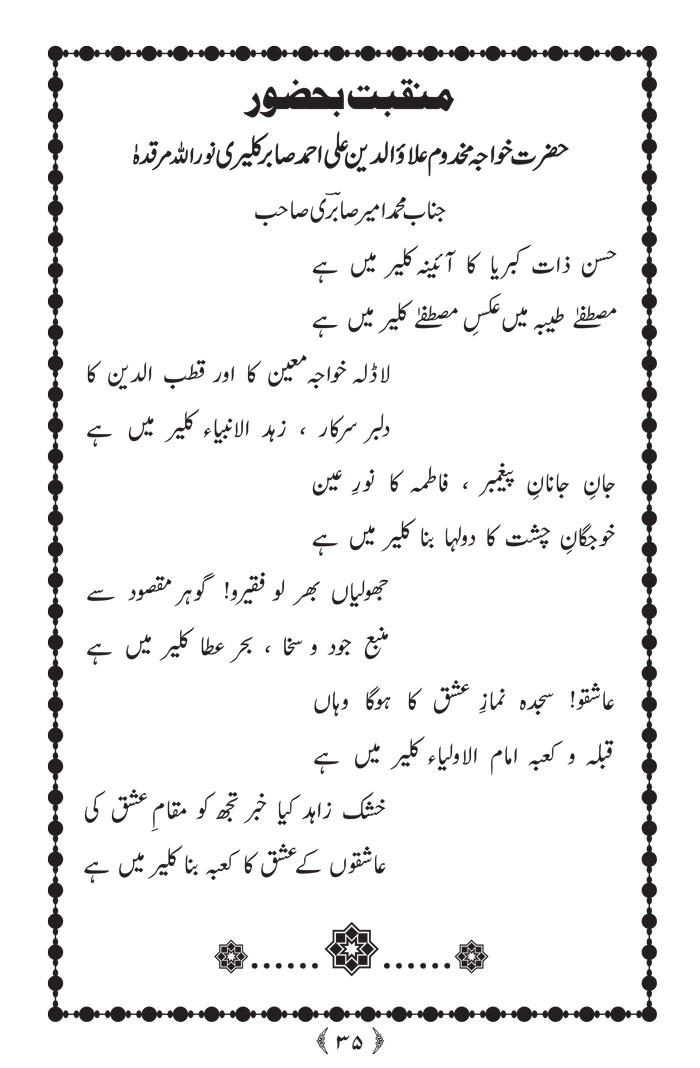 منقبت بحضور
حضرت خواجہ مخدوم علاؤالدین علی احمد صابر کلیری نوراللہ مرقدہٗ
جناب محمد امیر صابریؔ صاحب
حسن ذات کبریا کا آئینہ کلیر میں ہے
مصطفےٰ طیبہ میں عکسِ مصطفےٰ کلیر میں ہے
لاڈلہ خواجہ معین کا اور قطب الدین کا
دلبر سرکار ، زہد الانبیاء کلیر میں ہے
جانِ جانانِ پیغمبر ، فاطمہ کا نورِ عین
خوجگانِ چشت کا دولہا بنا کلیر میں ہے
جھولیاں بھر لو فقیرو! گوہر مقصود سے
منبع جود و سخا ، بحر عطا کلیر میں ہے
عاشقو! سجدہ نمازِ عشق کا ہوگا وہاں
قبلہ و کعبہ امام الاولیاء کلیر میں ہے
خشک زاہد کیا خبر تجھ کو مقامِ عشق کی
عاشقوں کے عشق کا کعبہ بنا کلیر میں ہے
﴿۳۵﴾